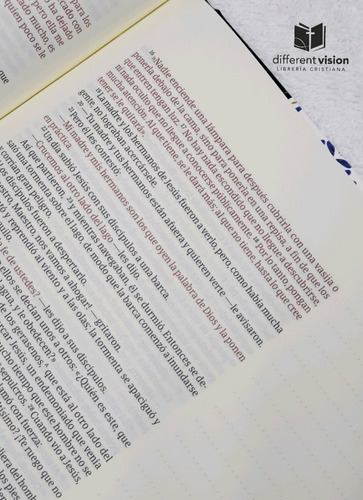 para los
cado con
pero ella me
ha derrama
mucho, es
quien poco se le
16 »Nadie enciende una lámpara para después cubrirla con una vasija o
ponerla debajo de la cama, sino para ponerla en una repisa, a fin de que los
que entren tengan luz. 17 No hay nada escondido que no llegue a descubrirse,
ni nada oculto que no llegue a conocerse públicamente. 18 Por lo tanto, pongan
mucha atención. Al que tiene, se le dará más; al que no tiene, hasta lo que cree
tener se le quitará».
19 La madre y los hermanos de Jesús fueron a verlo, pero, como había mucha
gente, no lograban acercársele.
20 —Tu madre y tus hermanos están afuera y quieren verte —le avisaron.
21 Pero él les contestó:
—Mi madre y mis hermanos son los que oyen la palabra de Dios y la ponen
en práctica.
22 Un día subió Jesús con sus discípulos a una barca.
—Crucemos al otro lado del lago —les dijo.
Así que partieron, 23 y mientras navegaban, él se durmió. Entonces se de-
sató una tormenta sobre el lago, de modo que la barca comenzó a inundarse
corrían gran peligro.
os discípulos fueron a despertarlo.
estro, Maestro, nos vamos a ahogar! —gritaron.
y reprendió al viento y a las olas; la tormenta se apaciguó y
fe de ustedes? —les dijo a sus discípulos.
ellos se decían unos a otros: «¿Quién es este, que
agua, y le obedecen?».
los gerasenos, que está al otro lado del
car Jesús, un endemoniado que venía
ucho tiempo que este hombre no se
sepulcros. 28 Cuando vio a Jesús,
mó con fuerza:
ísimo? ¡Te ruego que no
liera del hombre
los pies
different vision
LIBRERÍA CRISTIANA